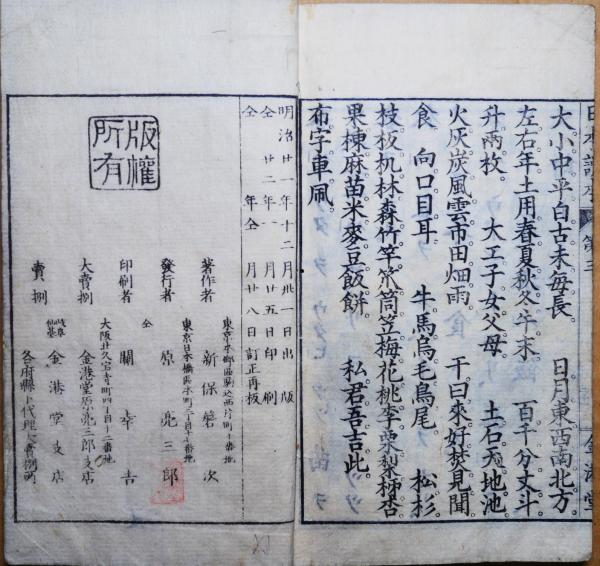 大小中平白古未每長　日月東西南北方
左右年土用春夏秋冬午末　百千分丈斗
升兩枚。　大工子女父母　土石天地池
火灰炭風雲市田畑雨　干曰來好焚見聞
食　向口目耳　牛馬烏毛鳥尾　松杉
枝板机林森竹竿笊筒笠梅花桃李栗梨柿杏
果棟麻苗米麥豆飯餅。　私君吾吉此。
布字車凧。
金港堂
明治廿一年十二月卅一日出版
仝　廿二年一月廿五日印刷
仝　年仝月廿八日訂正再板
著作者　新保磐次
發行者　原亮三郎
東京日本橋區本町三丁目十七番地
印刷者　關幸吉
大阪北久宝寺町四丁目十二番地
大賣捌　金港堂原亮三郎支店
賣捌　金港堂支店
岐阜
仙臺
各府縣下代理大賣捌所
版權所有